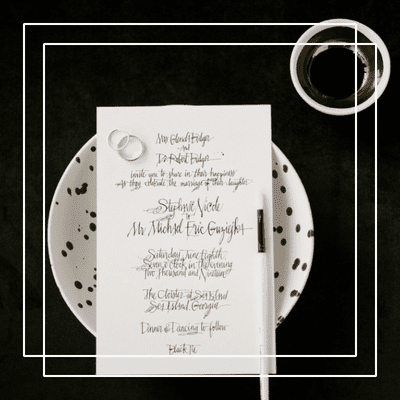 Mrs Glenda Bidger
And
Dr Robert Bidger
invite you to share in their happiness
as they celebrate the marriage of their daughter
Stephanie Nicole
to
Mr Michael Eric
Saturday, June Eighth
Seven o'clock in the evening
Two Thousand and Nineteen
The Cloister at Sea Island
Sea Island Georgia
Dinner & Dancing to follow
Black Tie